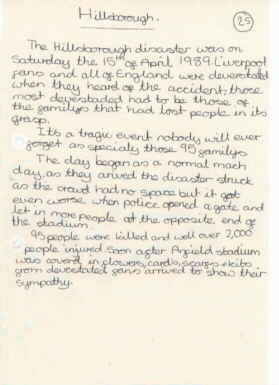 Hillsborough.
25
The Hillsborough disaster was on
Saturday the 15th of April 1989. Liverpool
fans and all of England were deverstated
when they heard of the accident, those
most deverstated had to be those of
the familys that had lost people in its
grasp.
Its a tragic event nobody will ever
forget as specialy those 95 familys
The day began as a normal mach
day, as they arived the disaster struck
as the crowd had no space but it got
even worse when police opened a gate and
let in more people at the opposite end of
the stadium.
95 people were killed and well over 2,000
people injured. Soon after Anfield stadium
was coverd in flowers, cards, scarfs + kits
from devestated fans arrived to show their
sympathy.